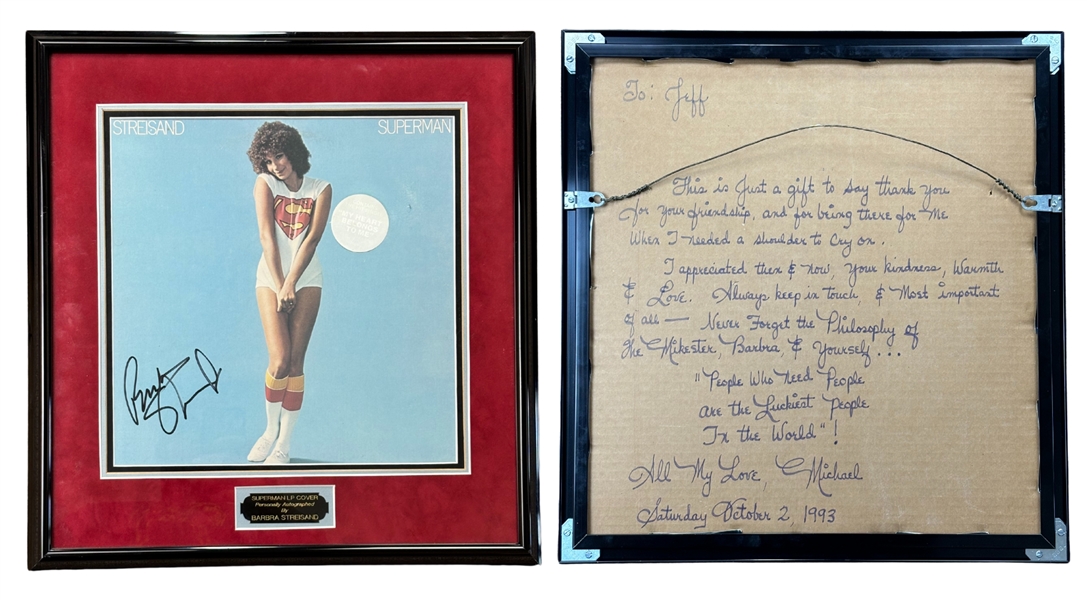 STREISAND SUPERMAN
S
"MY HEART
BELONGS
TO ME"
SUPERMAN LP COVER
Personally Autographed
By
BARBRA STREISAND
To: Jeff
This is Just a gift to say thank you
for your friendship, and for being there for Me
When I needed a shoulder to Cry on.
I appreciated then & now, your kindness, Warmth
& Love. Always keep in touch, & Most important
of all — Never Forget the Philosophy of
the Mikester, Barbra, & Yourself...
"People Who Need People
are the Luckiest People
In the World"!
All My Love, Michael
Saturday October 2, 1993